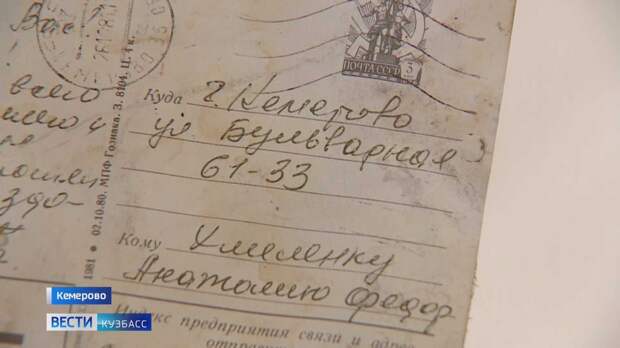 Вас
!
ПОЧТА СССР
3
Куда г. Кемерово
ул Бульварная
61-33
Кому Хмеленку
Анатолию Федор
Индекс предприятия связи и адрес
отправи
1981 ● 02.10.80. МПФ Гознака. З. 8104. Ц. 4 к.
здо-
Кемерово
ВЕСТИ КУЗБАСС